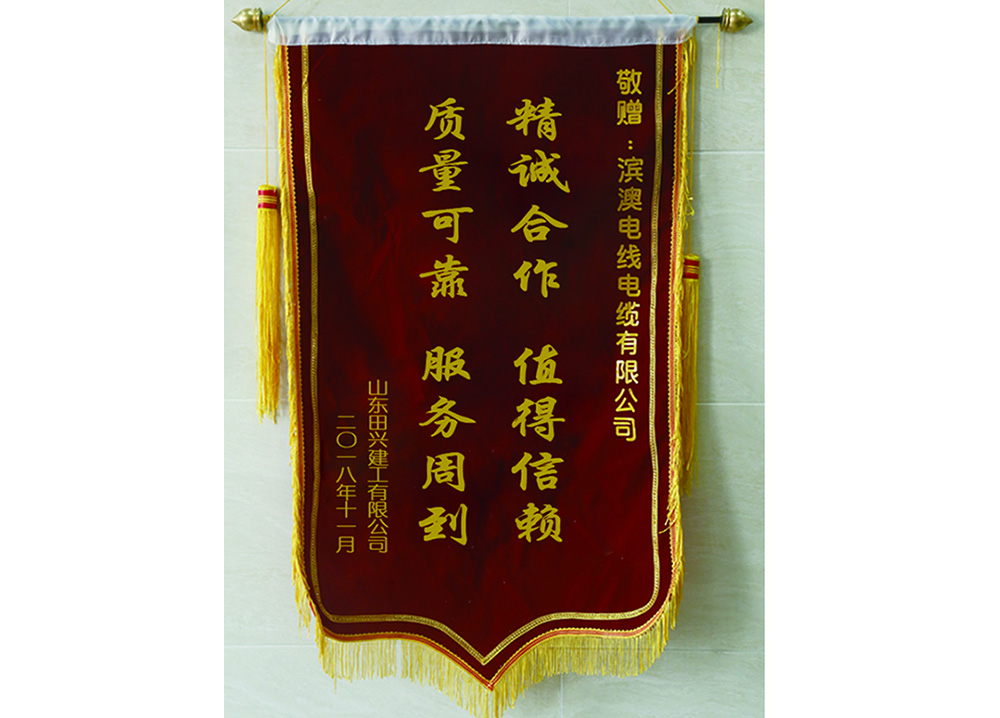 敬赠：滨澳电线电缆有限公司
精诚合作 值得信赖
质量可靠 服务周到
山东田兴建工有限公司
二〇一八年十一月